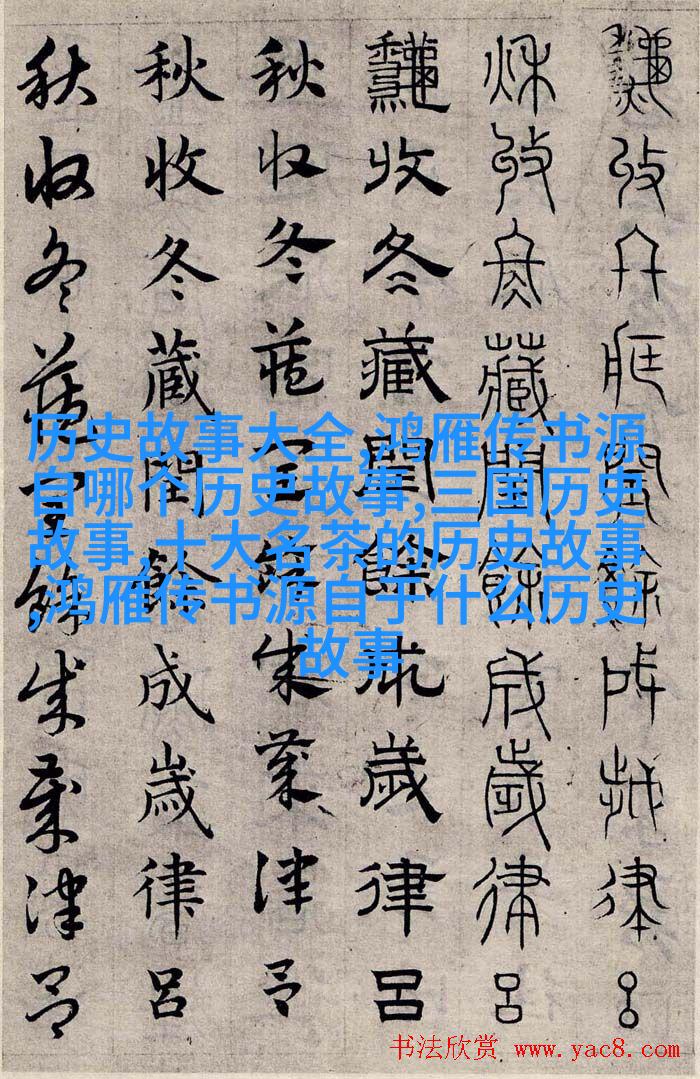 秋收冬藏閏餘成歲律呂
秋收冬藏閏餘成歲律呂
秋收冬藏閏餘成歲律呂
秋收冬藏閏餘成歲律呂
秋收冬藏閏餘成歲律呂
秋收冬藏閏餘成歲律呂
历史故事大全,鸿雁传书源
自哪个历史故事,三国历史
故事,十大名茶的历史故事
,鸿雁传书源自于什么历史
故事
书法欣赏 www.yac8.com